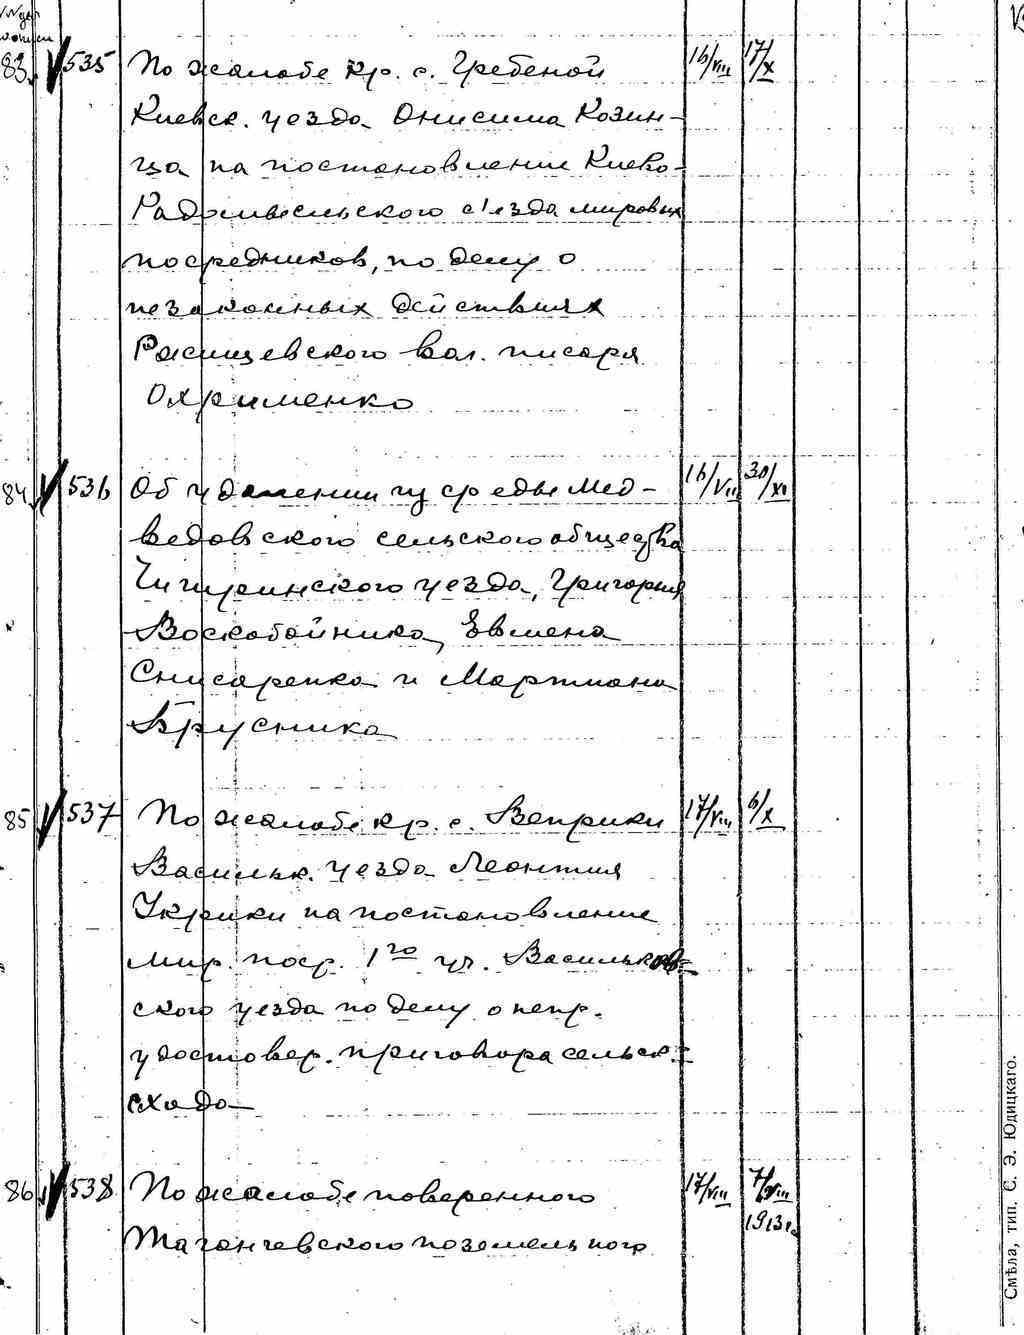 83 535 По жалобе кр. с. Гребеной 16/VIII 17/X
Киевск. уезда Онисима Козин-
ца на постановление Киево-
Радомысльского с'езда мировых
посредников, по делу о
незаконных действиях
Ржищевского вол. писаря
Охрименко
84 536 Об удалении из среды Мед- 16/VIII 30/XI
ведовского сельского общества
Чигиринского уезда, Григория
Воскобойника, Евмена
Снисаренка и Мартиана
Брусника
85 537 По жалобе кр. с. Веприки 17/VIII 6/X
Васильк. уезда Леонтия
Украики на постановление
мир. поср. 1го уч. Васильков-
ского уезда по делу о непр.
удостовер. приговора сельск.
схода
86 538 По жалобе поверенного 17/VIII 7/VIII
1913 г.
Таганчевского поземельного
Смѣла, тип. С. Э. Юдицкаго.